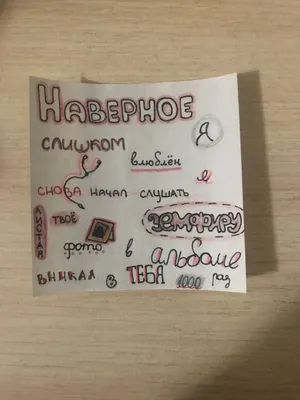 НАВЕРНОЕ Я
СЛИШКОМ влюблён
СНОВА НАЧАЛ СЛУШАТЬ я
ЛИСТАЯ ТВОЁ ЗЕМФИРУ
фото в альбоме
ВНИКАЛ В ТЕБЯ 1000 раз